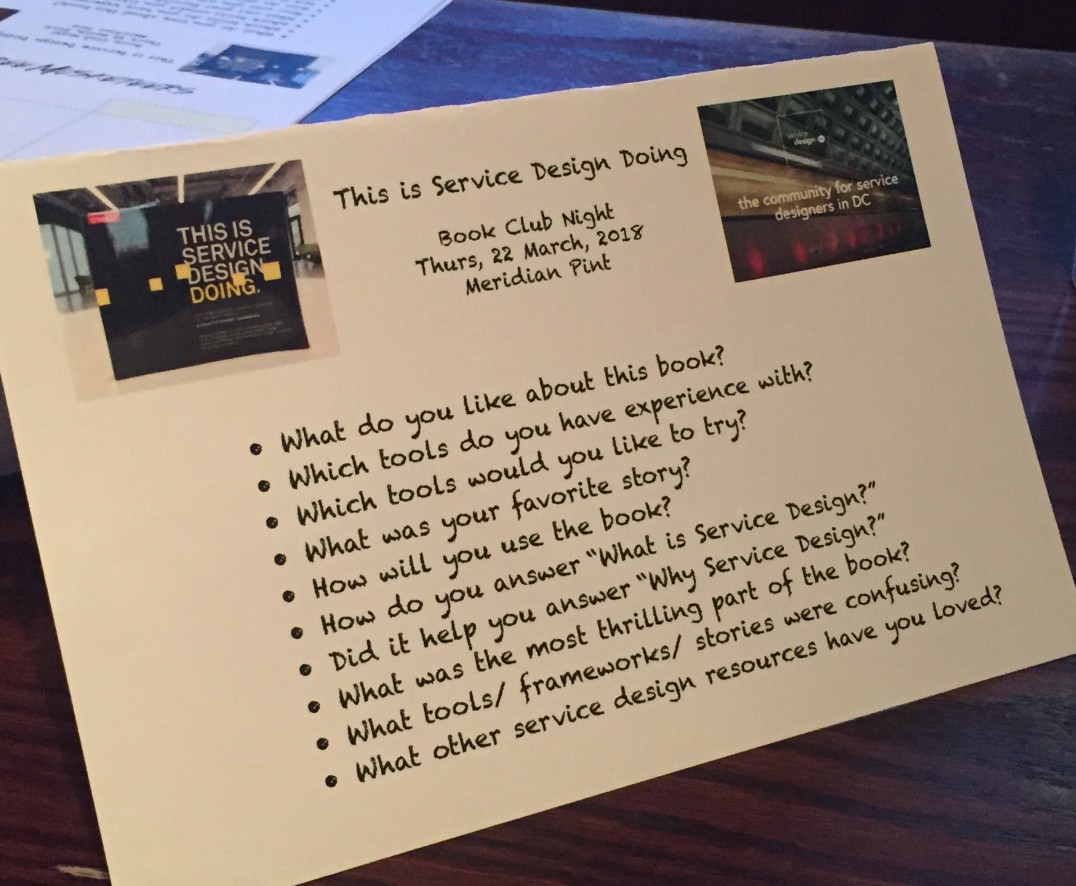 This is Service Design Doing
Book Club Night
Thurs, 22 March, 2018
Meridian Pint
THIS IS
SERVICE
DESIGN
DOING.
service
design
the community for service
designers in DC
• What do you like about this book?
• Which tools do you have experience with?
• Which tools would you like to try?
• What was your favorite story?
• How will you use the book?
• How do you answer “What is Service Design?”
• Did it help you answer “Why Service Design?”
• What was the most thrilling part of the book?
• What tools/ frameworks/ stories were confusing?
• What other service design resources have you loved?